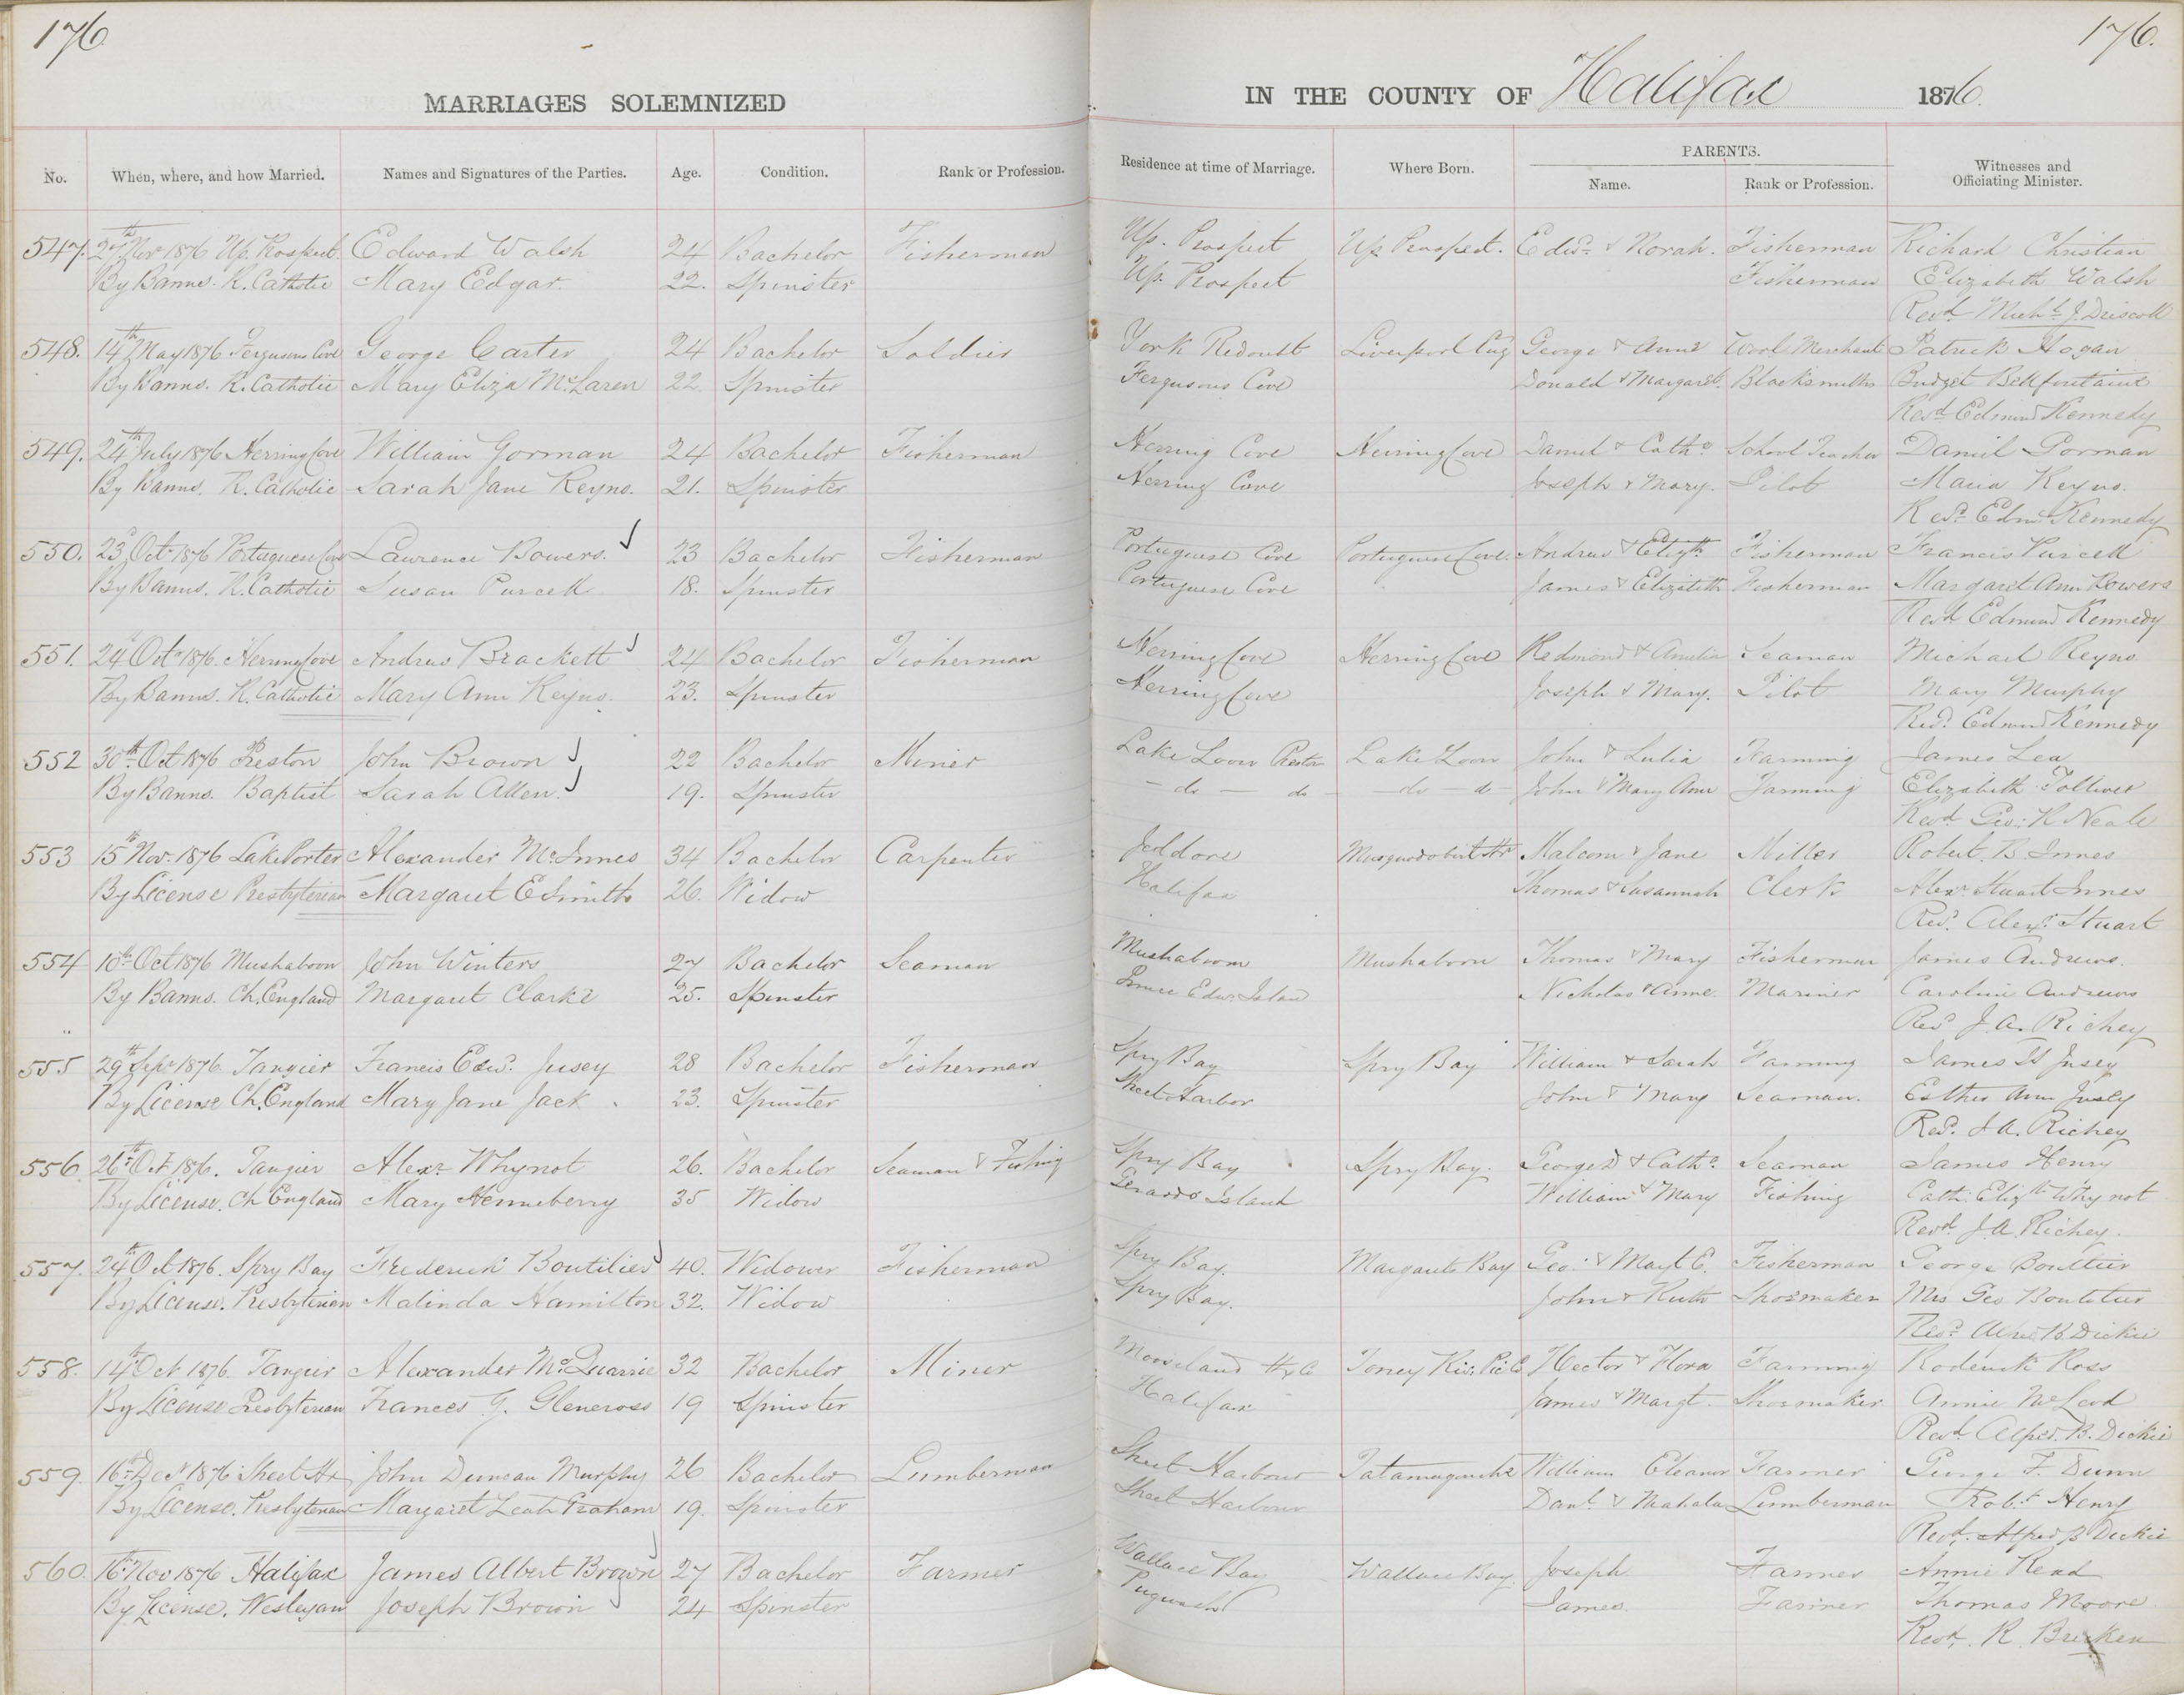 176
176.
MARRIAGES SOLEMNIZED
IN THE COUNTY OF Halifax 1876.
No. When, where, and how Married. Names and Signatures of the Parties. Age. Condition. Rank or Profession. Residence at time of Marriage. Where Born. PARENTS. Name. Rank or Profession. Witnesses and Officiating Minister.
547. 27th Nov 1876 Up. Prospect. Edward Walsh 24 Bachelor Fisherman Up. Prospect Up Prospect. Edwd. & Norah. Fisherman Richard Christian
By Banns. R. Catholic Mary Edgar. 22. Spinster Up. Prospect Fisherman Elizabeth Walsh
Revd. Michl. J. Driscoll
548. 14th May 1876 Fergusons Cove George Carter 24 Bachelor Soldier York Redoubt Liverpool Eng George & Anne Wool Merchant Patrick Hogan
By Banns. R. Catholic Mary Eliza McLaren 22. Spinster Fergusons Cove Donald & Margaret. Blacksmith Bridget Bellfontaine
Revd Edmund Kennedy
549. 24th July 1876 Herring Cove William Gorman 24 Bachelor Fisherman Herring Cove Herring Cove Daniel & Cathe School Teacher Daniel Gorman
By Banns. R. Catholic Sarah Jane Keyno. 21. Spinster Herring Cove Joseph & Mary. Pilot Maria Keyno.
Revd. Edmd Kennedy
550. 23d Oct 1876 Portuguese Cove Lawrence Bowers. 23 Bachelor Fisherman Portuguese Cove Portuguese Cove. Andrew & Elizth Fisherman Francis Purcell
By Banns. R. Catholic Susan Purcell 18. Spinster Portuguese Cove James & Elizabeth Fisherman Margaret Ann Bowers
Revd Edmund Kennedy
551. 24 Oct 1876. Herring Cove Andrew Brackett 24 Bachelor Fisherman Herring Cove Herring Cove Redmond & Amelia Seaman Michael Keyno.
By Banns. R. Catholic Mary Ann Keyno. 23. Spinster Herring Cove Joseph & Mary. Pilot Mary Murphy
Revd. Edmund Kennedy
552 30th Oct 1876 Preston John Brown 22 Bachelor Miner Lake Loon Preston Lake Loon John & Lulia Farming James Lea
By Banns. Baptist Sarah Allen. 19. Spinster - do - do - - do - do - John & Mary Ann Farming Elizabeth Tolliver
Revd. Geo: R Neale
553 15th Nov. 1876 Lake Porter Alexander McInnes 34 Bachelor Carpenter Jeddore Musquodoboit Hr Malcom & Jane Miller Robert. B. Innes
By License Presbyterian Margaret E Smith 26. Widow Halifax Thomas & Susannah Clerk Alexr Stuart Innes
Revd. Alexr. Stuart
554 10th Oct 1876 Mushaboon John Winters 27 Bachelor Seaman Mushaboom Mushaboon Thomas & Mary Fisherman James Andrews.
By Banns. Ch. England Margaret Clarke 25. Spinster Prince Edwd. Island Nicholas & Anne Mariner Caroline Andrews
Revd J. A. Richey
555 29th Sepr 1876. Tangier Francis Edwd. Jusey 28 Bachelor Fisherman Spry Bay Spry Bay William & Sarah Farming James H Jusey
By License Ch. England Mary Jane Jack 23. Spinster Sheet Harbor John & Mary Seaman. Esther Ann Jusey
Revd. J. A. Richey
556. 26th Oct 1876. Tangier Alexr Whynot 26. Bachelor Seaman & Fishing Spry Bay Spry Bay. George D & Cathe Seaman James Henry
By License. Ch England Mary Henneberry 35 Widow Gerards Island William & Mary Fishing Cath: Elizth Whynot
Revd. J. A. Richey.
557. 24th Oct 1876. Spry Bay Frederick Boutilier 40. Widower Fisherman Spry Bay. Margarets Bay Geo: & Margt E. Fisherman George Boutilier
By License. Presbyterian Malinda Hamilton 32. Widow Spry Bay. John & Ruth Shoemaker Mrs Geo Boutilier
Revd. Alfred B. Dickie
558. 14th Oct 1876. Tangier Alexander McQuarrie 32 Bachelor Miner Mooseland Hx Co Toney Riv. Pic C Hector & Flora Farming Roderick Ross
By License Presbyterian Frances G. Glencross 19 Spinster Halifax James & Margt. Shoemaker. Annie McLeod
Revd. Alfred. B. Dickie
559. 16th Oct 1876 Sheet Hr John Duncan Murphy 26 Bachelor Lumberman Sheet Harbour Tatamagouche William Eleanor Farmer George F. Dunn
By License. Presbyterian Margaret Leah Graham 19. Spinster Sheet Harbour Danl. & Mahala Lumberman Robt. Henry
Revd. Alfred B Dickie
560. 16th Nov 1876 Halifax James Albert Brown 27 Bachelor Farmer Wallace Bay Wallace Bay. Joseph Farmer Annie Read
By License. Wesleyan Joseph Brown 24 Spinster Pugwash James. Farmer Thomas Moore.
Revd. R. Brecken